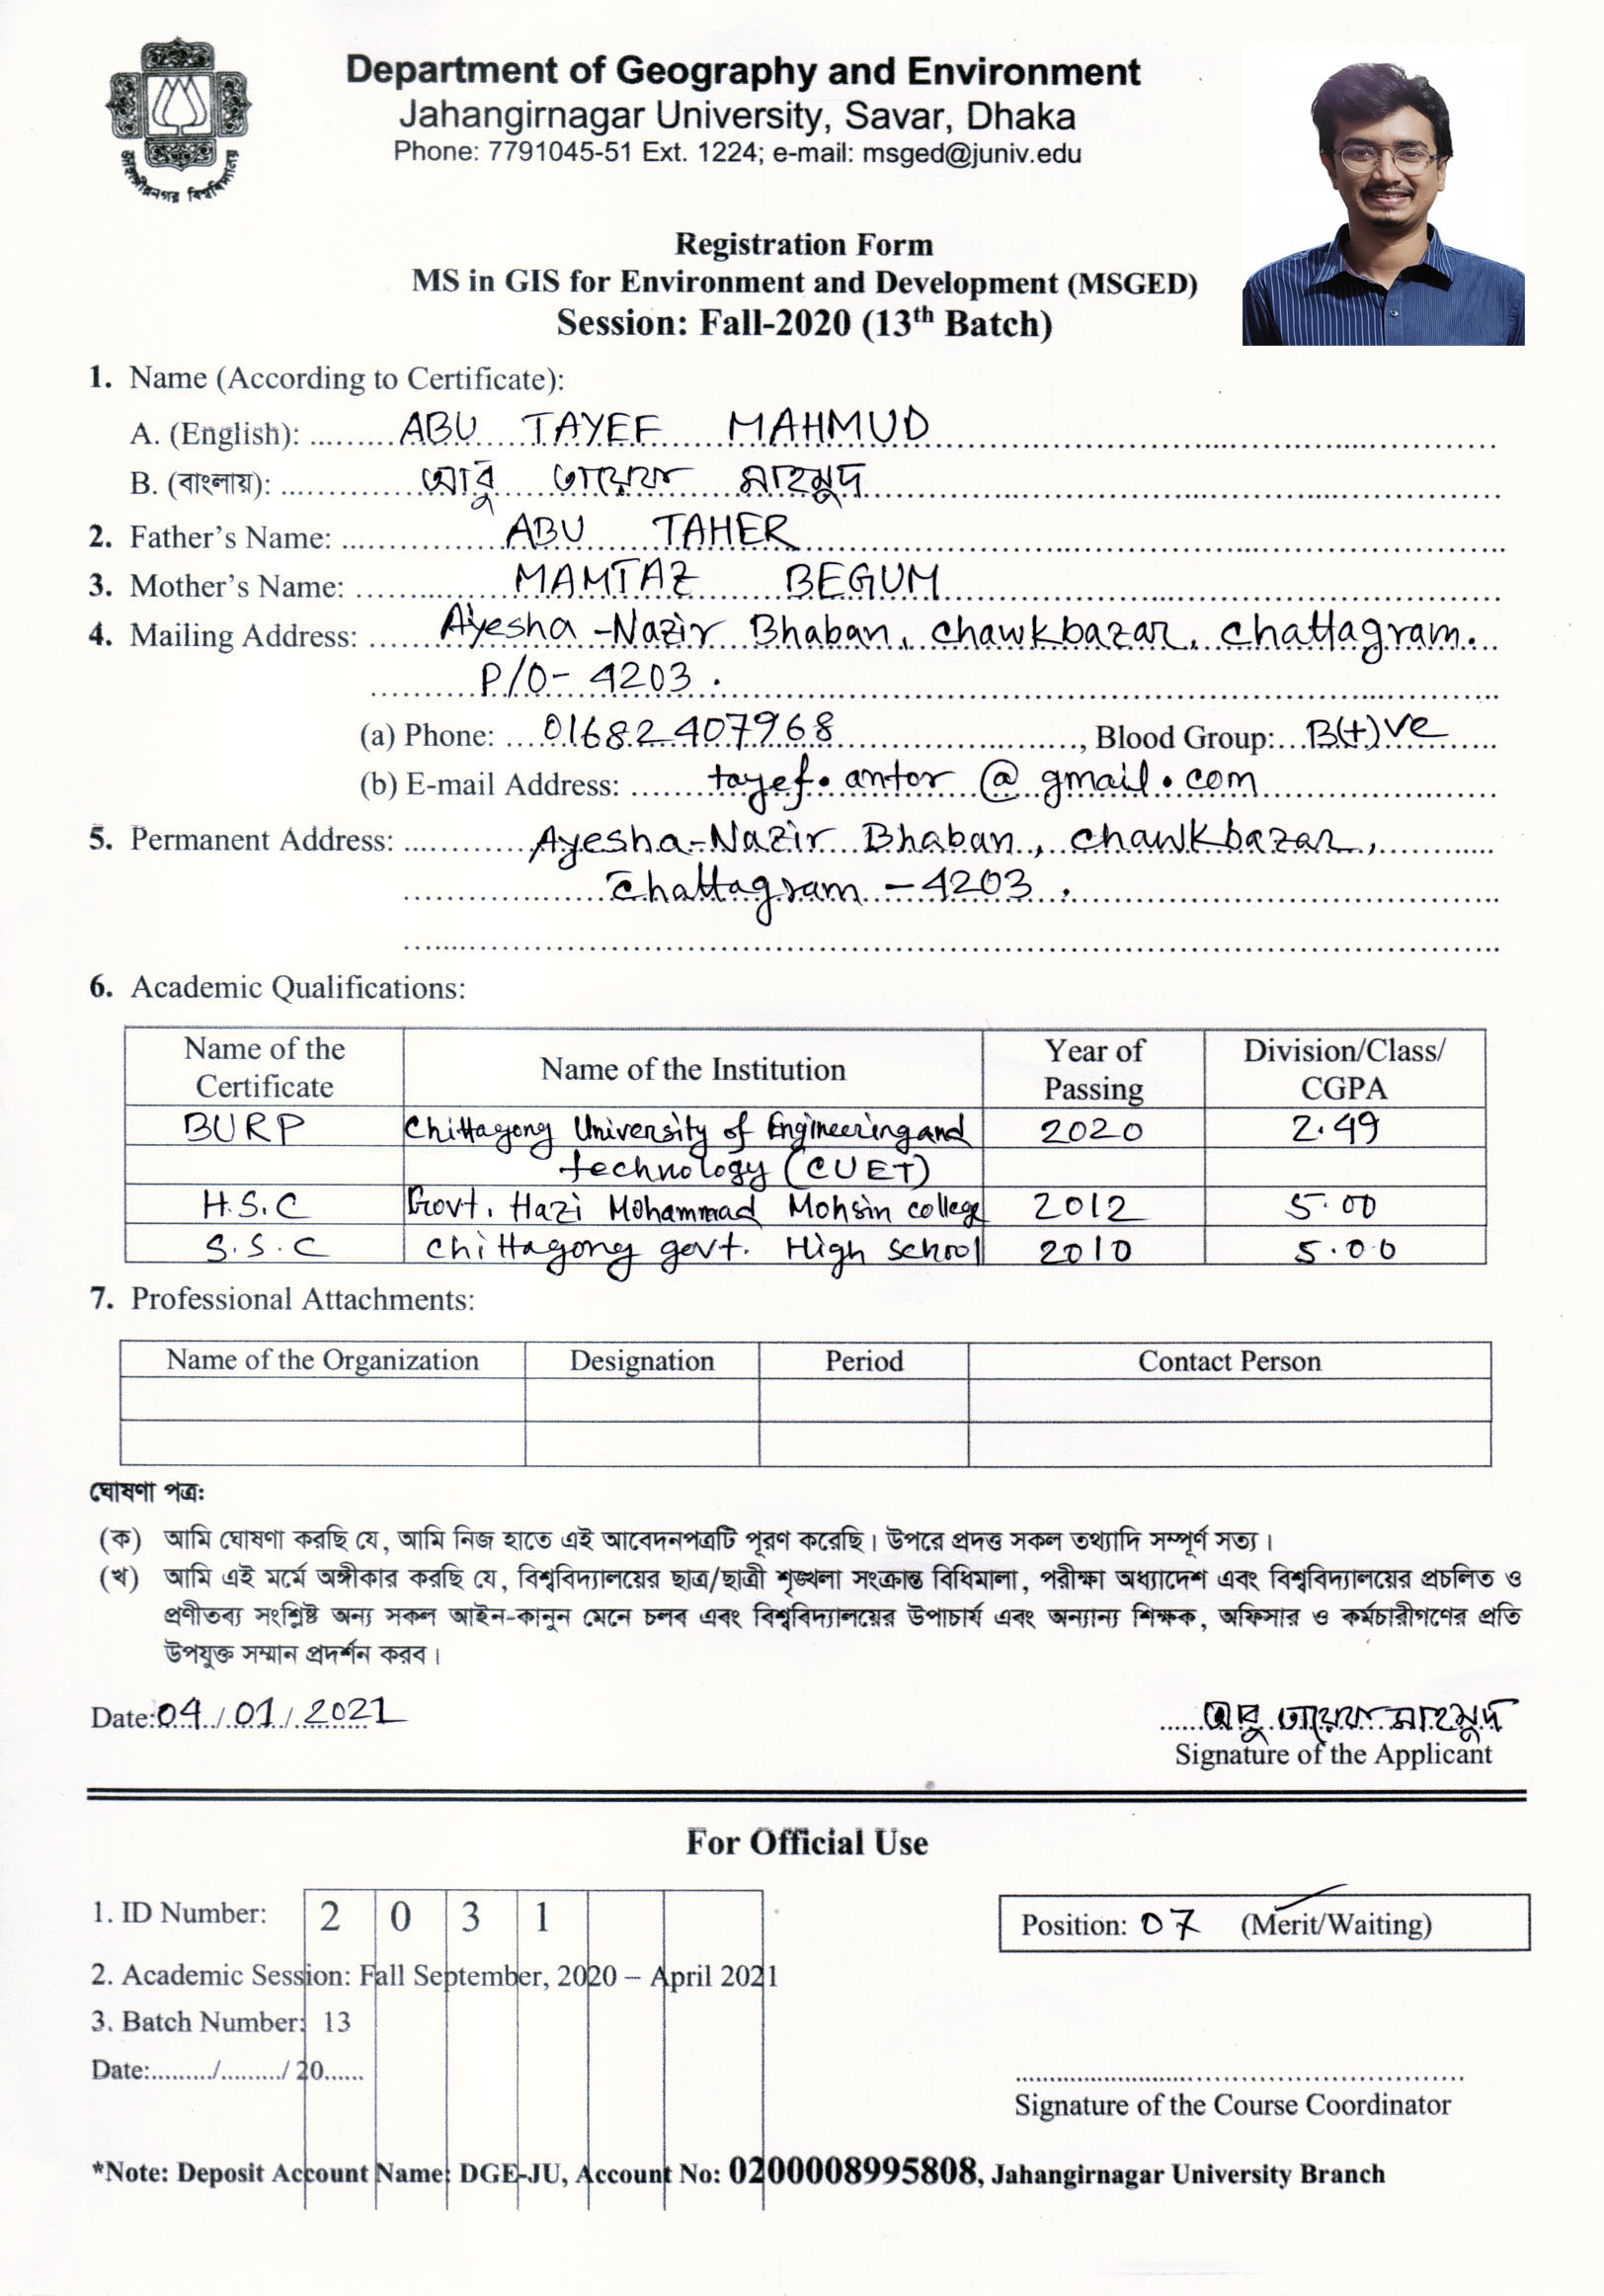 Department of Geography and Environment
Jahangirnagar University, Savar, Dhaka
Phone: 7791045-51 Ext. 1224; e-mail: msged@juniv.edu
জাহাঙ্গীরনগর বিশ্ববিদ্যালয়
Registration Form
MS in GIS for Environment and Development (MSGED)
Session: Fall-2020 (13th Batch)
1. Name (According to Certificate):
A. (English): ABU TAYEF MAHMUD
B. (বাংলায়): আবু তায়েফ মাহমুদ
2. Father's Name: ABU TAHER
3. Mother's Name: MAMTAZ BEGUM
4. Mailing Address: Ayesha-Nazir Bhaban, chawkbazar, chattagram.
P/O- 4203.
(a) Phone: 01682407968, Blood Group: B(+)ve
(b) E-mail Address: tayef.antor@gmail.com
5. Permanent Address: Ayesha-Nazir Bhaban, chawkbazar,
chattagram - 4203.
6. Academic Qualifications:
Name of the Certificate Name of the Institution Year of Passing Division/Class/ CGPA
BURP Chittagong University of Engineering and 2020 2.49
technology (CUET)
H.S.C Govt. Hazi Mohammad Mohsin college 2012 5.00
S.S.C chittagong govt. High school 2010 5.00
7. Professional Attachments:
Name of the Organization Designation Period Contact Person
ঘোষণা পত্র:
(ক) আমি ঘোষণা করছি যে, আমি নিজ হাতে এই আবেদনপত্রটি পূরণ করেছি। উপরে প্রদত্ত সকল তথ্যাদি সম্পূর্ণ সত্য।
(খ) আমি এই মর্মে অঙ্গীকার করছি যে, বিশ্ববিদ্যালয়ের ছাত্র/ছাত্রী শৃঙ্খলা সংক্রান্ত বিধিমালা, পরীক্ষা অধ্যাদেশ এবং বিশ্ববিদ্যালয়ের প্রচলিত ও
প্রণীতব্য সংশ্লিষ্ট অন্য সকল আইন-কানুন মেনে চলব এবং বিশ্ববিদ্যালয়ের উপাচার্য এবং অন্যান্য শিক্ষক, অফিসার ও কর্মচারীগণের প্রতি
উপযুক্ত সম্মান প্রদর্শন করব।
Date: 04/01/2021 আবু তায়েফ মাহমুদ
Signature of the Applicant
For Official Use
1. ID Number: 2 0 3 1 Position: 07 (Merit/Waiting)
2. Academic Session: Fall September, 2020 – April 2021
3. Batch Number: 13
Date:........./........./ 20......
Signature of the Course Coordinator
*Note: Deposit Account Name: DGE-JU, Account No: 0200008995808, Jahangirnagar University Branch